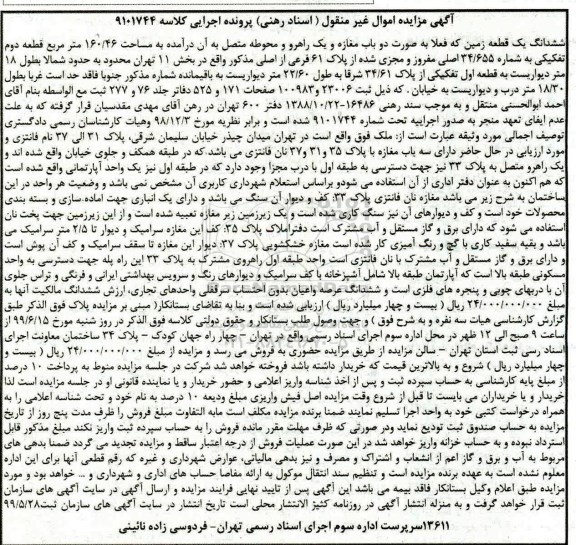 آگهی مزایده اموال غیر منقول ( اسناد رهنی) پرونده اجرایی کلاسه ۹۱۰۱۷۴۴
ششدانگ یک قطعه زمین که فعلا به صورت دو باب مغازه و یک راهرو و محوطه متصل به آن درآمده به مساحت ۱۶۰/۴۶ متر مربع قطعه دوم
تفکیکی به شماره ۳۴/۶۵۵ اصلی مفروز و مجزی شده از پلاک ۶۱ فرعی از اصلی مذکور واقع در بخش ۱۱ تهران محدود به حدود شمالا بطول ۱۸
متر دیواریست به قطعه اول تفکیکی از پلاک ۳۴/۶۱ شرقا به طول ۲۲/۶۰ متر دیواریست به باقیمانده شماره مذکور جنوبا فاقد حد است غربا بطول
۱۸/۳۰ متر درب و دیواریست به خیابان . که ذیل ثبت ۲۳۰۰۶ و ۱۰۰۹۸۳ صفحات ۱۷۱ و ۵۲۵ دفاتر جلد ۷۶ و ۲۷۷ ثبت مع الواسطه بنام آقای
احمد ابوالحسنی منتقل و به موجب سند رهنی ۱۶۴۸۶-۱۳۸۸/۱۰/۲۲ دفتر ۶۰۰ تهران در رهن آقای مهدی مقدسیان قرار گرفته که به علت
عدم ایفای تعهد منجر به صدور اجراییه تحت شماره ۹۱۰۱۷۴۴ شده است و برابر نظریه مورخ ۹۸/۱۲/۳ وهیات کارشناسان رسمی دادگستری
توصیف اجمالی مورد وثیقه عبارت است از: ملک فوق واقع است در تهران میدان چیذر خیابان سلیمان شرقی، پلاک ۳۱ الی ۳۷ نام فانتزی و
مورد ارزیابی در حال حاضر دارای سه باب مغازه با پلاک ۳۵ و ۳۱و ۳۷ نان فانتزی می باشد.که در طبقه همکف و جلوی خیابان واقع شده اند و
یک راهرو متصل به پلاک ۳۳ نیز جهت دسترسی به طبقه اول با درب مجزا وجود دارد که در طبقه اول نیز یک واحد آپارتمانی واقع شده است
که هم اکنون به عنوان دفتر اداری از آن استفاده می شودو براساس استعلام شهرداری کاربری آن مشخص نمی باشد و وضعیت هر واحد در این
ساختمان به شرح زیر می باشد مغازه نان فانتزی پلاک ۳۱، کف و دیوار آن سنگ می باشد و دارای یک انباری جهت اماده سازی و بسته بندی
محصولات خود است و کف و دیوارهای آن نیز سنگ کاری شده است و یک زیرزمین زیر مغازه تعبیه شده است و از این زیرزمین جهت پخت نان
استفاده می شود که دارای برق و گاز مستقل و آب مشترک است دفتراملاک پلاک ۳۵: کف این مغازه سرامیک و دیوار تا ۲/۵ متر سرامیک می
باشد و بقیه سفید کاری با گچ و رنگ آمیزی کار شده است مغازه خشکشویی پلاک ۳۷: دیوار این مغازه تا سقف سرامیک و کف آن پوش است
و دارای برق و گاز مستقل و آب مشترک با نان فانتزی است واحد طبقه اول راهروی مشترک به پلاک ۳۳ این راه پله جهت دسترسی به واحد
مسکونی طبقه بالا است که آپارتمان طبقه بالا شامل آشپزخانه با کف سرامیک و دیوارهای رنگ و سرویس بهداشتی ایرانی و فرنگی و تراس جلوی
آن با دربهای چوبی و پنجره های فلزی است و ششدانگ عرصه واعیان بدون احتساب سرقفلی واحدهای تجاری، ارزش ششدانگ مالکیت آنها به
مبلغ ۲۴/۰۰۰/۰۰۰/۰۰۰ ریال ( بیست و چهار میلیارد ریال ) ارزیابی شده است و بنا به تقاضای بستانکار( مبنی بر مزایده پلاک فوق الذکر طبق
گزارش کارشناسی هیات سه نفره و به شرح فوق ) و جهت وصول طلب بستانکار و حقوق دولتی کلاسه فوق الذکر در روز شنبه مورخ ۹۹/۶/۱۵ از
ساعت ۹ صبح الی ۱۲ ظهر در محل اداره سوم اجرای اسناد رسمی واقع در تهران - چهار راه جهان کودک - پلاک ۳۴ ساختمان معاونت اجرای
اسناد رسی ثبت استان تهران - سالن مزایده از طریق مزایده حضوری به فروش می رسد و مزایده از مبلغ ۲۴/۰۰۰/۰۰۰/۰۰۰ ریال ( بیست و
چهار میلیارد ریال ) شروع و به بالاترین قیمت که خریدار داشته باشد فروخته خواهد شد شرکت در جلسه مزایده منوط به پرداخت ۱۰ درصد
از مبلغ پایه کارشناسی به حساب سپرده ثبت و پس از اخذ شناسه واریز اعلامی و حضور خریدار و یا نماینده قانونی او در جلسه مزایده است لذا
خریدار و یا خریداران می بایست تا قبل از شروع وقت مزایده اصل فیش واریزی مبلغ ودیعه ۱۰ درصد به نام خود و تحت شناسه اعلامی را به
همراه درخواست کتبی خود به واحد اجرا تسلیم نمایند ضمنا برنده مزایده مکلف است مابه التفاوت مبلغ فروش را ظرف مدت پنج روز از تاریخ
مزایده به حساب صندوق ثبت تودیع نماید ودر صورتی که ظرف مهلت مقرر مانده فروش را به حساب سپرده ثبت واریز نکند مبلغ مذکور قابل
استرداد نبوده و به حساب خزانه واریز خواهد شد در این صورت عملیات فروش از درجه اعتبار ساقط و مزایده تجدید می گردد ضمنا بدهی های
مربوط به آب و برق و گاز اعم از انشعاب و اشتراک و مصرف و نیز بدهی مالیاتی، عوارض شهرداری و غیره که رقم قطعی آنها برای این اداره
معلوم نشده است به عهده برنده مزایده است و تنظیم سند انتقال موکول به ارائه مفاصا حساب های اداری و شهرداری و ... خواهد بود و مورد
مزایده طبق اعلام وکیل بستانکار فاقد بیمه می باشد این آگهی پس از تایید نهایی فرایند مزایده و ارسال آگهی در سایت آگهی های سازمان
ثبت قرار خواهد گرفت و به منزله انتشار آگهی در روزنامه کثیر الانتشار محلی است تاریخ انتشار در سایت آگهی های سازمان ثبت۹۹/۵/۲۸
۱۳۶۱۱سرپرست اداره سوم اجرای اسناد رسمی تهران- فردوسی زاده نائینی